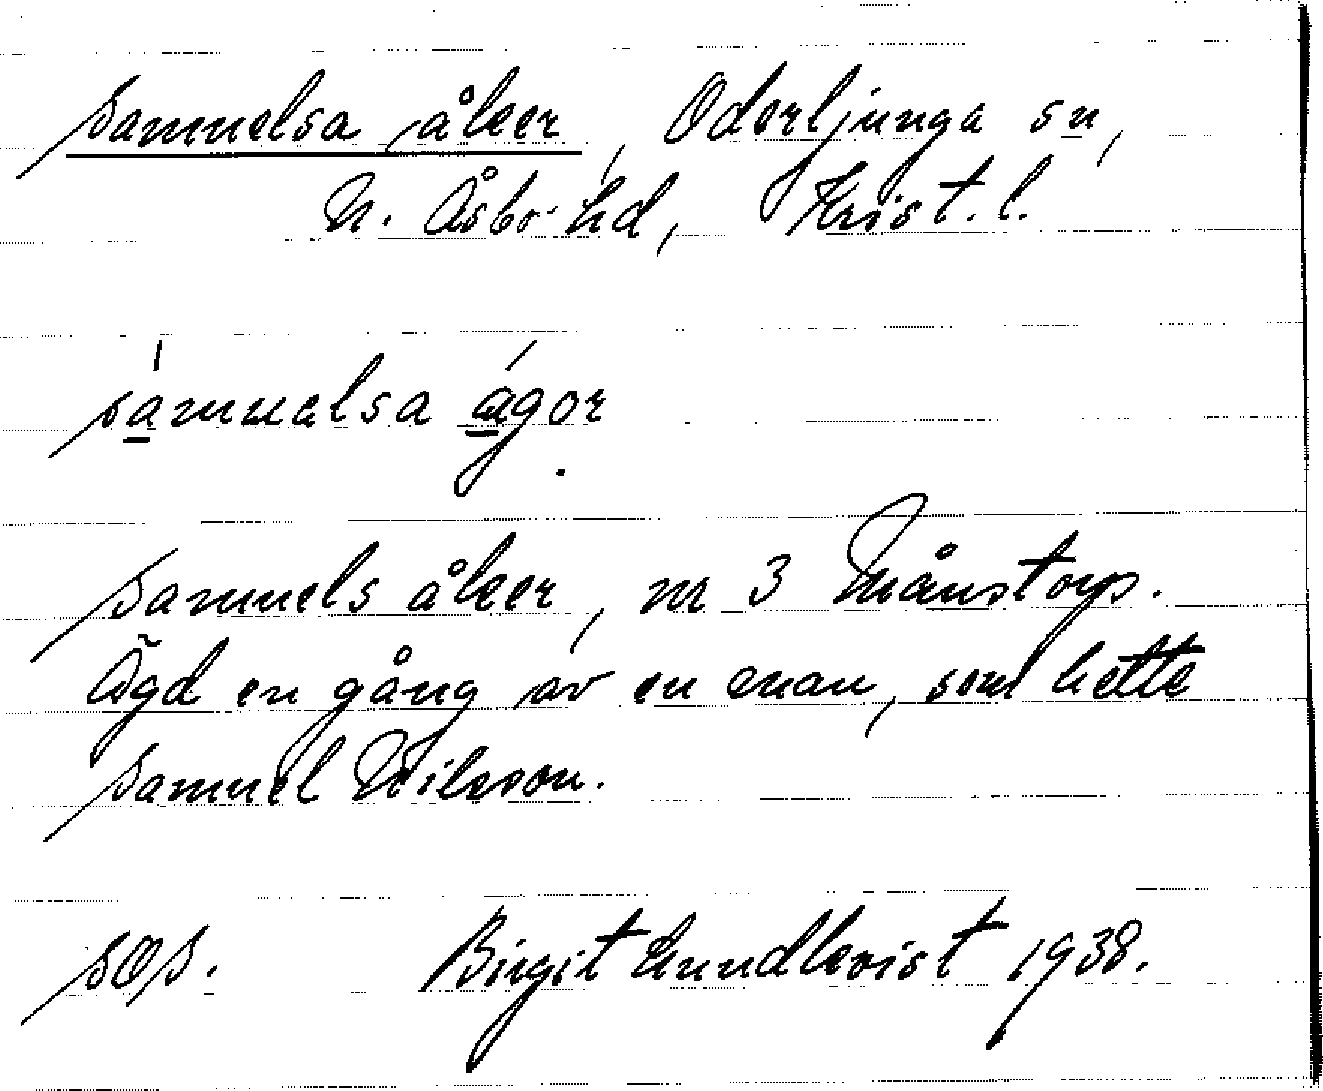 Samuelsa åker, Oderljunga sn,
N. Åsbo hd, Krist. l.
sámuelsa ágor
Samuels åker, nr 3 Månstorp.
Ägd en gång av en man, som hette
Samuel Nilsson.
SOS. Birgit Lundkvist 1938.